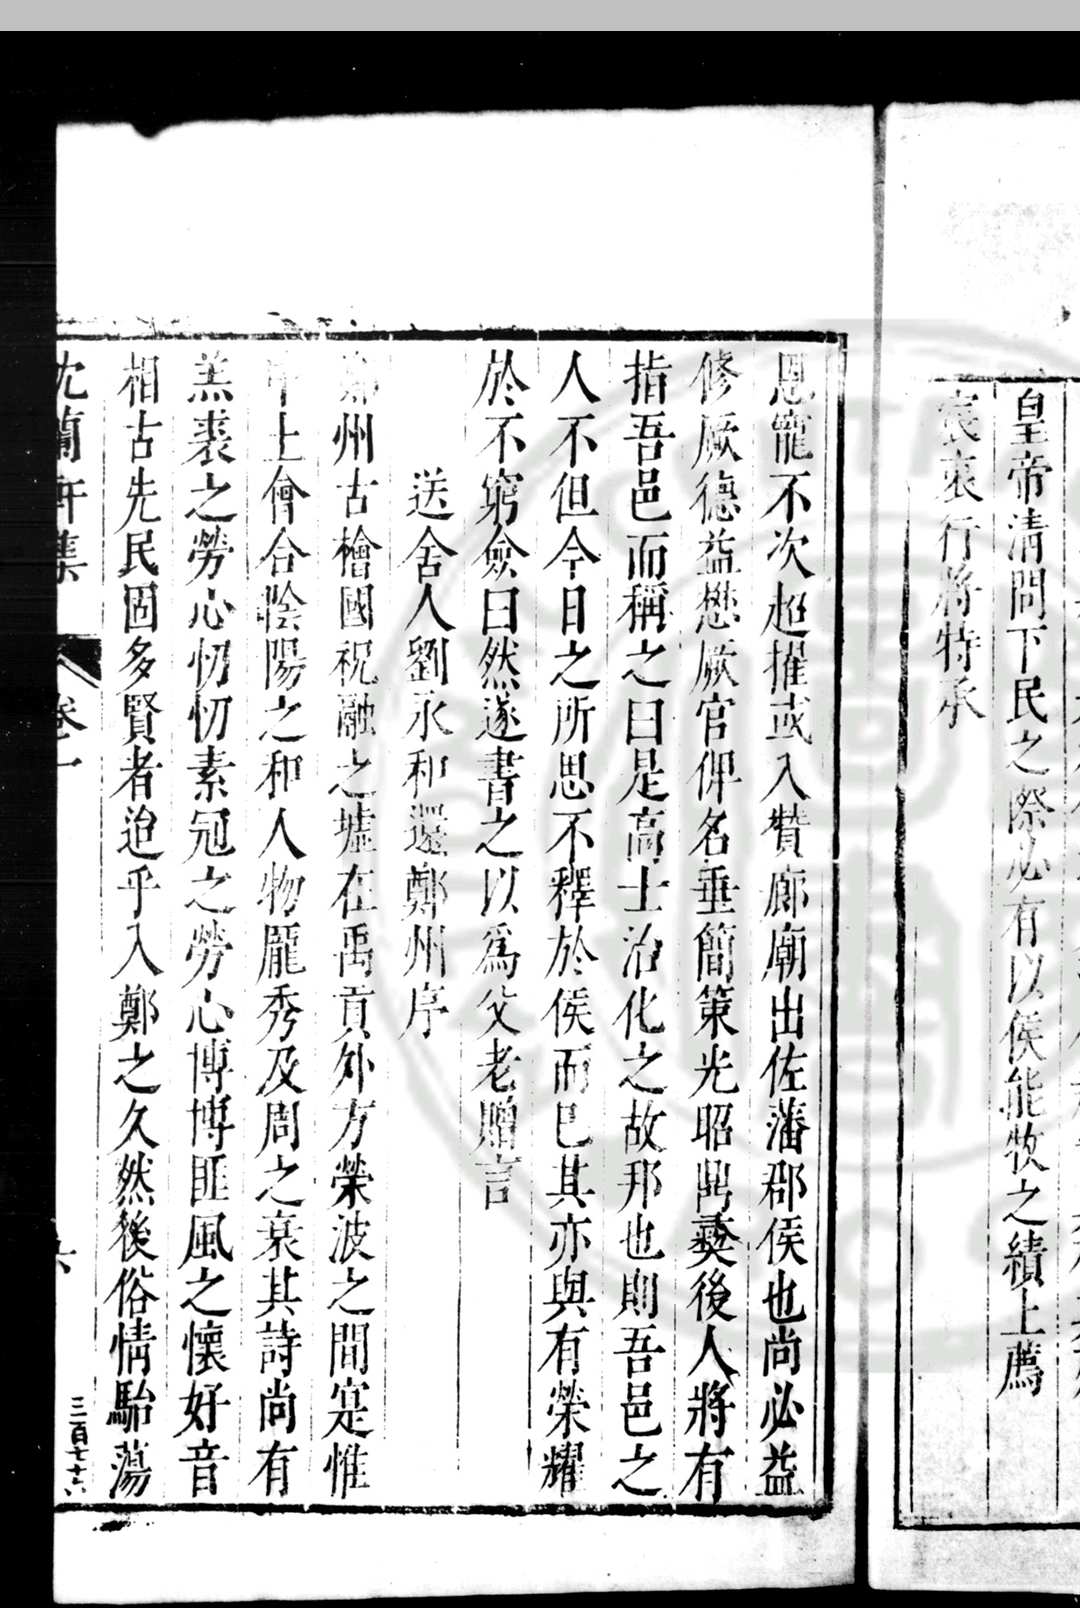 皇帝清問下民之際必有以侯能牧之績上薦
宸衷行將特承
恩寵不次超擢或入贊廊廟出佐藩郡侯也尚必益
修厥德益懋厥官俾名垂簡策光昭鼎彝後人將有
指吾邑而稱之曰是高士治化之故邦也則吾邑之
人不但今日之所思不釋於侯而已其亦與有榮耀
於不窮僉曰然遂書之以爲父老贈言
送舍人劉永和還鄭州序
鄭州古檜國祝融之墟在禹貢外方滎波之間寔惟
中土會合陰陽之和人物龐秀及周之衰其詩尚有
羔裘之勞心忉忉素冠之勞心博博匪風之懷好音
相古先民固多賢者迨乎入鄭之久然後俗情駘蕩
沈蘭軒集
卷一
三百七十六